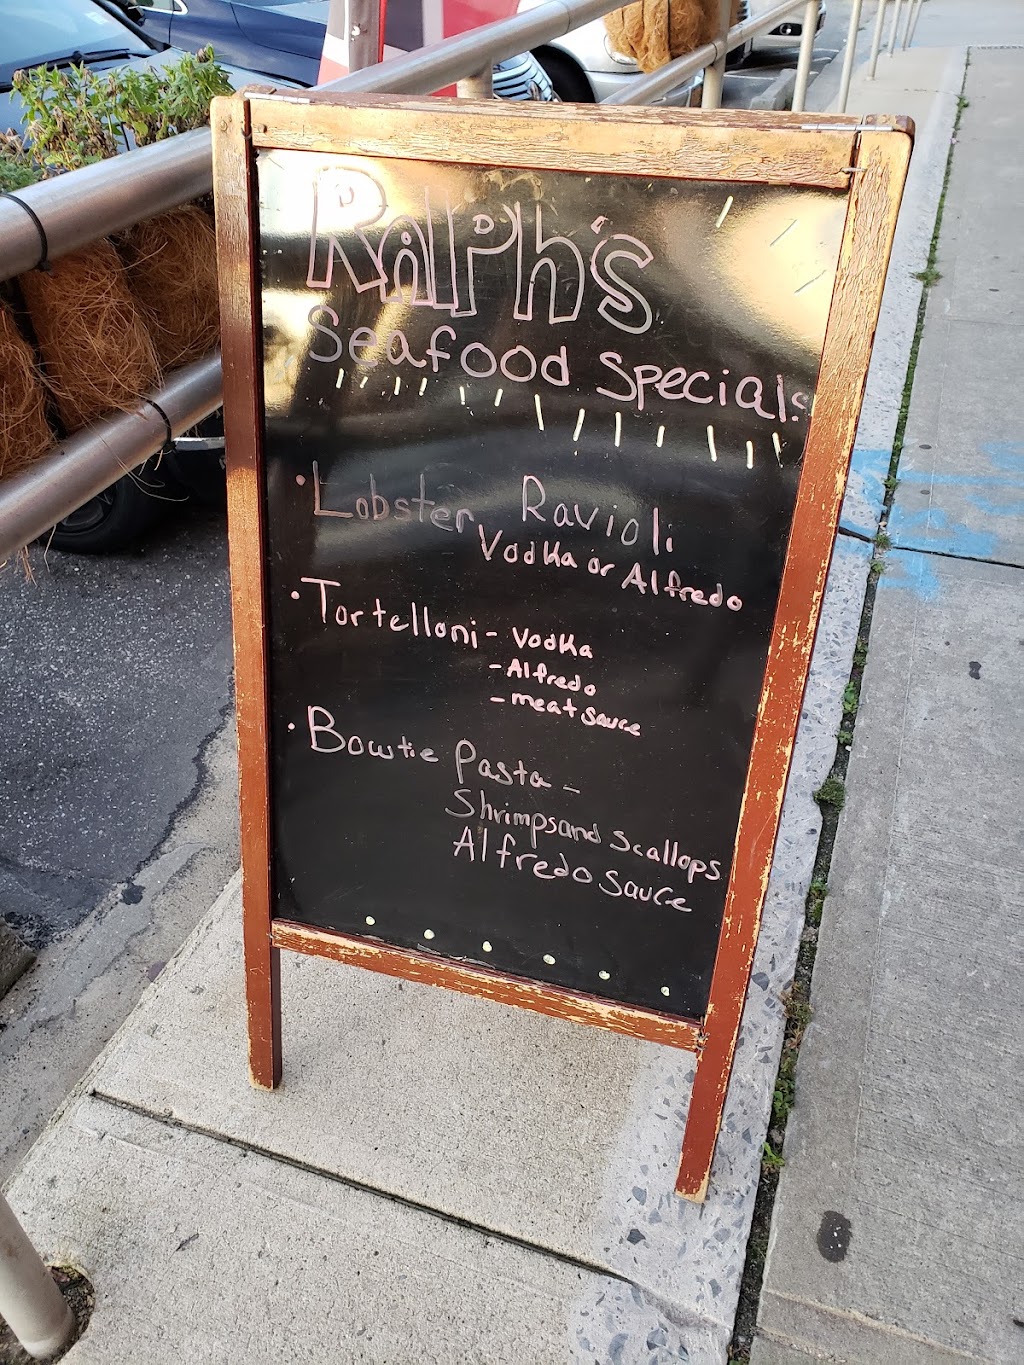 Ralph's
Seafood Specials
· Lobster Ravioli
Vodka or Alfredo
· Tortelloni - Vodka
- Alfredo
- meat sauce
· Bowtie Pasta -
Shrimps and Scallops
Alfredo Sauce